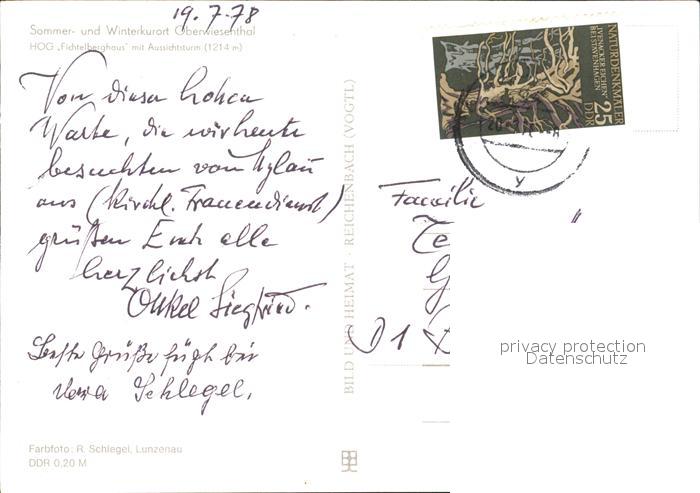 19.7.78
Sommer- und Winterkurort Oberwiesenthal
HOG „Fichtelberghaus" mit Aussichtsturm (1214 m)
Von dieser hohen
Warte, die wir heute
besuchten von Mylau
aus (Kirchl. Frauendienst)
grüßen Euch alle
herzlichst
Onkel Siegfried.
Beste Grüße fügt bei
Schlegel.
Farbfoto: R. Schlegel, Lunzenau
DDR 0,20 M
BILD UND HEIMAT · REICHENBACH (VOGTL)
NATURDENKMÄLER
IVENACKER EICHEN
BEI STAVENHAGEN
25
DDR
Familie
privacy protection
Datenschutz